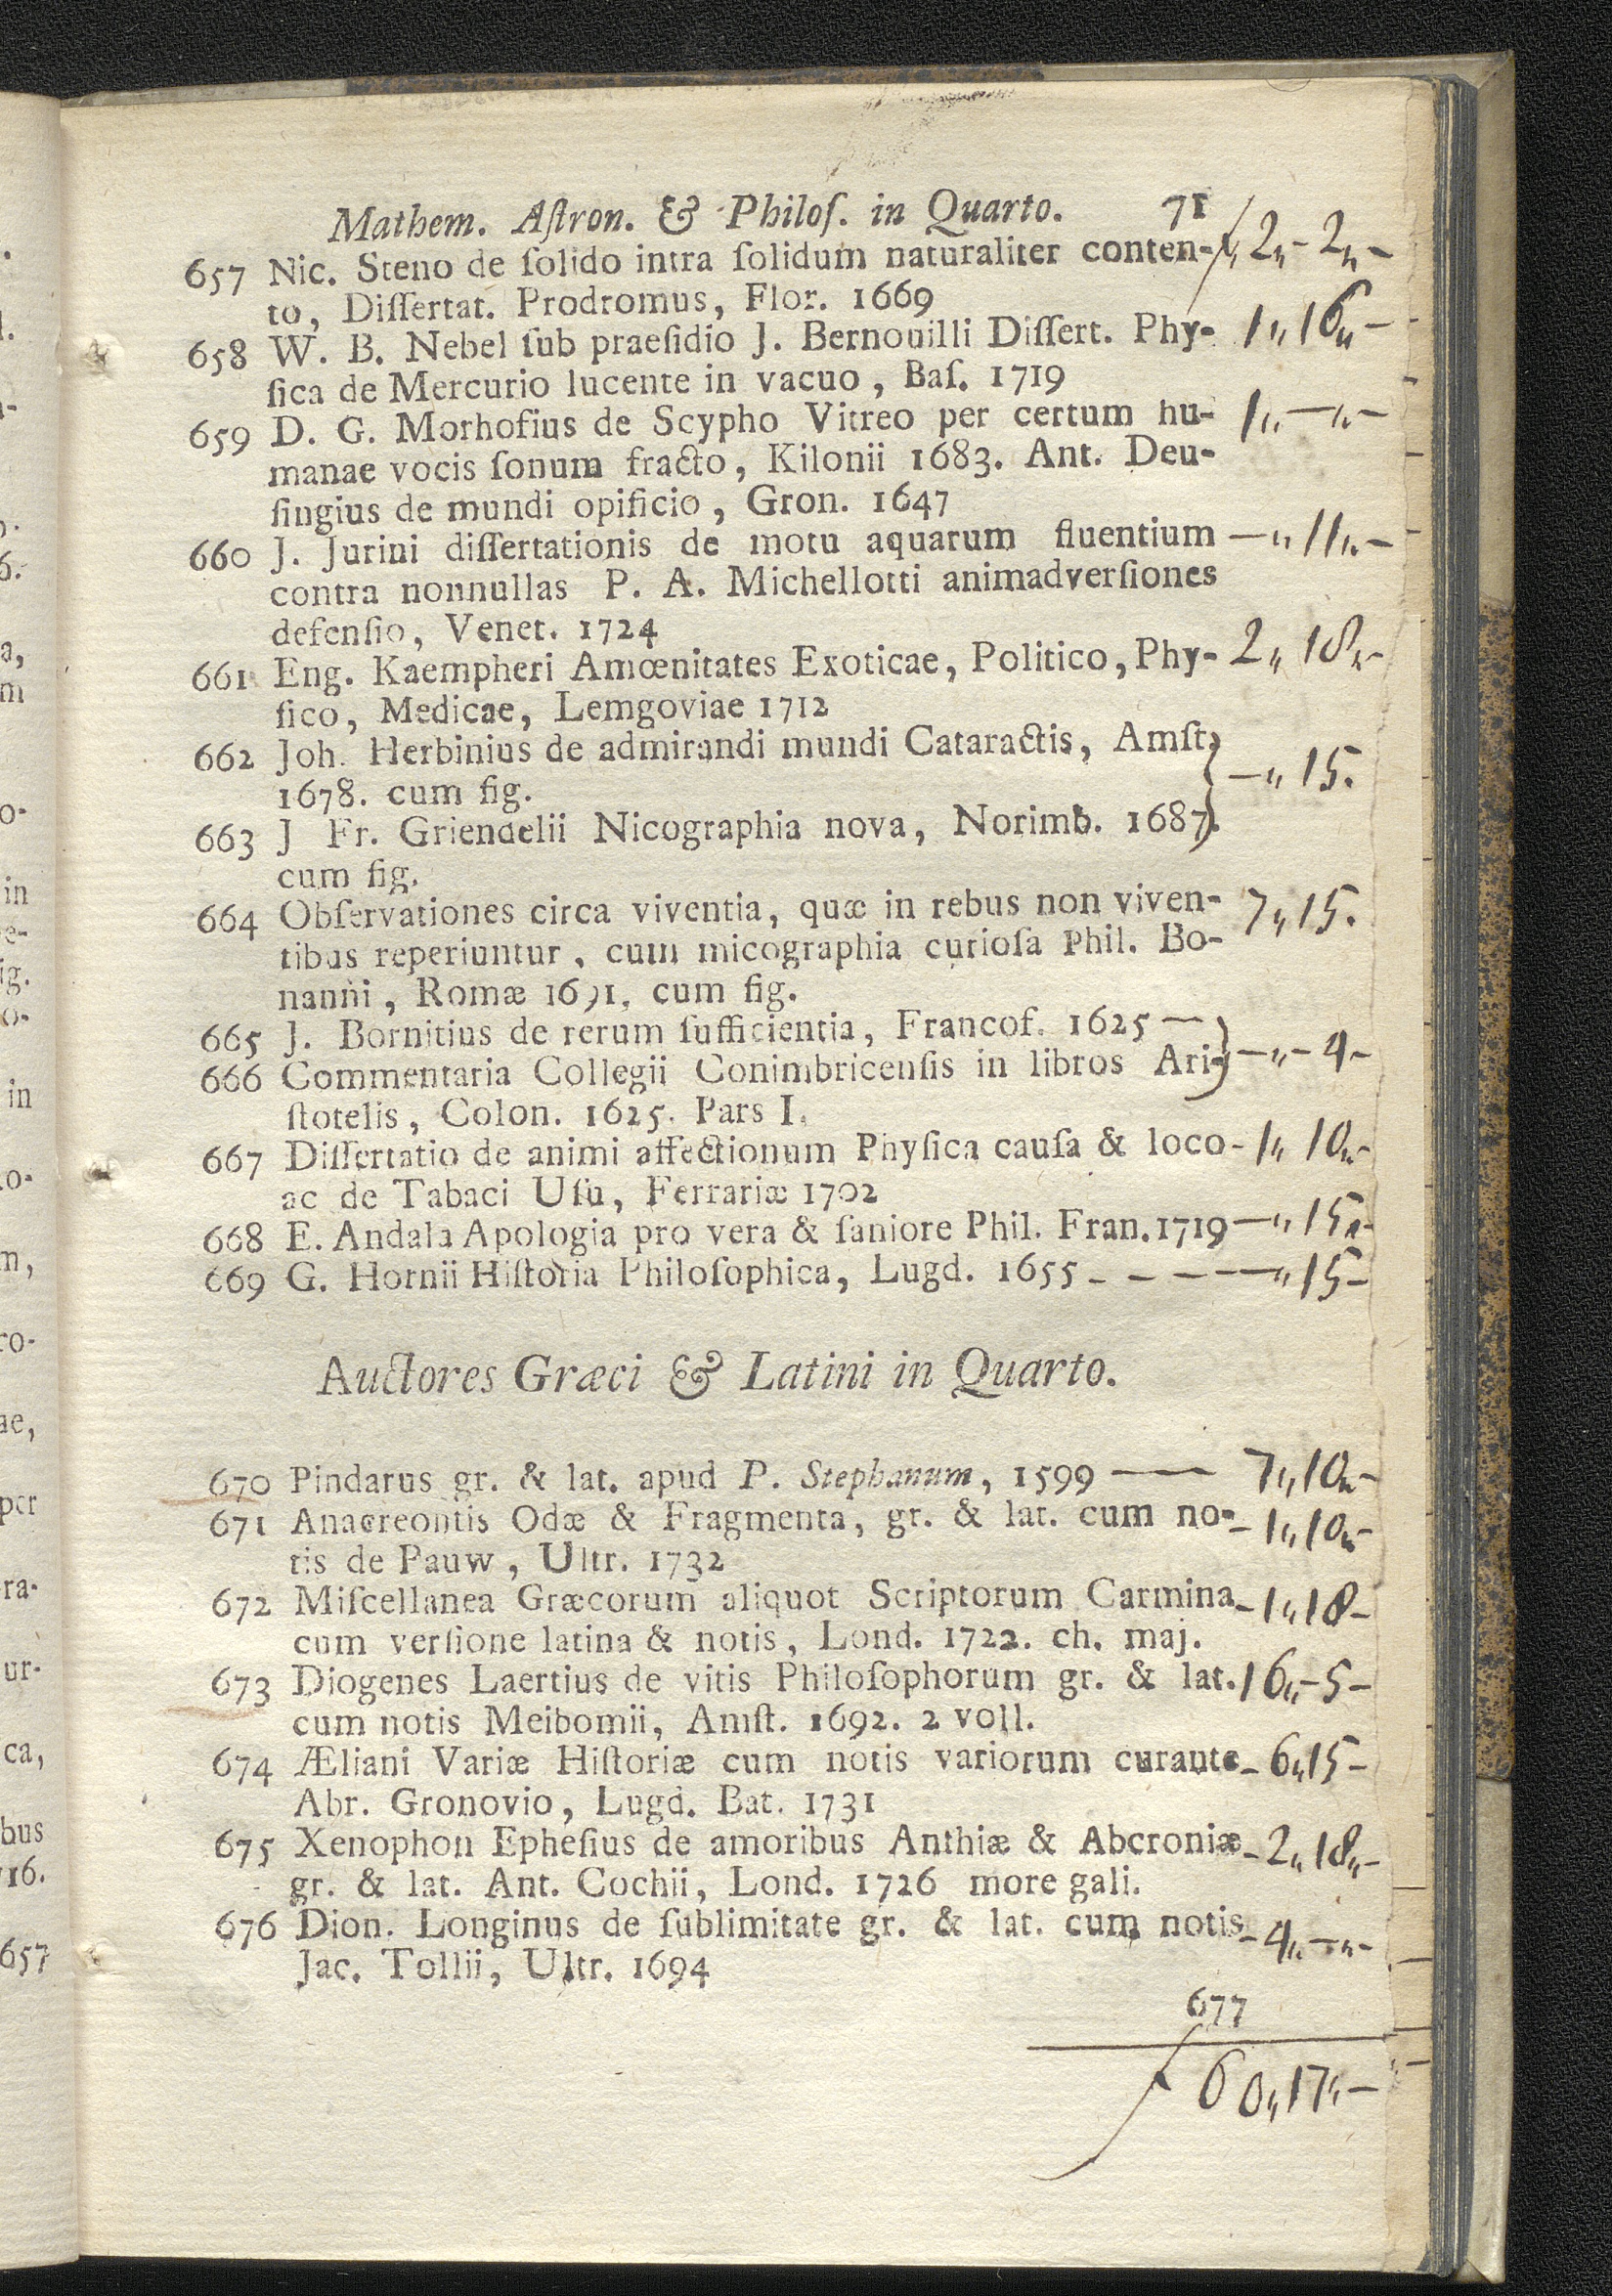 Mathem. Aſtron. & Philoſ. in Quarto. 71
657 Nic. Steno de ſolido intra ſolidum naturaliter conten- ƒ 2„-2„-
to, Diſſertat. Prodromus, Flor. 1669
658 W. B. Nebel ſub praeſidio J. Bernouilli Diſſert. Phy- 1„16„-
ſica de Mercurio lucente in vacuo, Baſ. 1719
659 D. G. Morhofius de Scypho Vitreo per certum hu- 1„-„-
manae vocis ſonum fracto, Kilonii 1683. Ant. Deu-
ſingius de mundi opificio, Gron. 1647
660 J. Jurini diſſertationis de motu aquarum fluentium -„11„-
contra nonnullas P. A. Michellotti animadverſiones
defenſio, Venet. 1724
661 Eng. Kaempheri Amœnitates Exoticae, Politico, Phy- 2„18„-
ſico, Medicae, Lemgoviae 1712
662 Joh. Herbinius de admirandi mundi Cataractis, Amſt.
1678. cum fig. } -„15.
663 J Fr. Griendelii Nicographia nova, Norimb. 1687.
cum fig.
664 Obſervationes circa viventia, quæ in rebus non viven- 7„15.
tibus reperiuntur, cum micographia curioſa Phil. Bo-
nanni, Romæ 1691. cum fig.
665 J. Bornitius de rerum ſufficientia, Francof. 1625 —
666 Commentaria Collegii Conimbricenſis in libros Ari- } -„-4-
ſtotelis, Colon. 1625. Pars I.
667 Diſſertatio de animi affectionum Phyſica cauſa & loco - 1„10„-
ac de Tabaci Uſu, Ferrariæ 1702
668 E. Andala Apologia pro vera & ſaniore Phil. Fran. 1719 -„15„-
669 G. Hornii Hiſtoria Philoſophica, Lugd. 1655 - - - -„15-
Auctores Græci & Latini in Quarto.
670 Pindarus gr. & lat. apud P. Stephanum, 1599 — 7„10„-
671 Anacreontis Odæ & Fragmenta, gr. & lat. cum no- - 1„10„-
tis de Pauw, Ultr. 1732
672 Miſcellanea Græcorum aliquot Scriptorum Carmina - 1„18-
cum verſione latina & notis, Lond. 1722. ch. maj.
673 Diogenes Laertius de vitis Philoſophorum gr. & lat. 16„-5-
cum notis Meibomii, Amſt. 1692. 2 voll.
674 Æliani Variæ Hiſtoriæ cum notis variorum curante - 6„15-
Abr. Gronovio, Lugd. Bat. 1731
675 Xenophon Epheſius de amoribus Anthiæ & Abcroniæ - 2„18„-
gr. & lat. Ant. Cochii, Lond. 1726 more gali.
676 Dion. Longinus de ſublimitate gr. & lat. cum notis - 4„-„-
Jac. Tollii, Ultr. 1694
677
ƒ 60„17„-